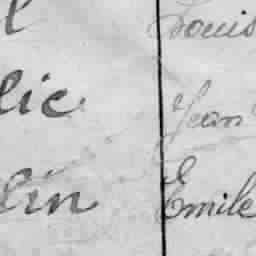 Louis
lic Jean
lin Emile